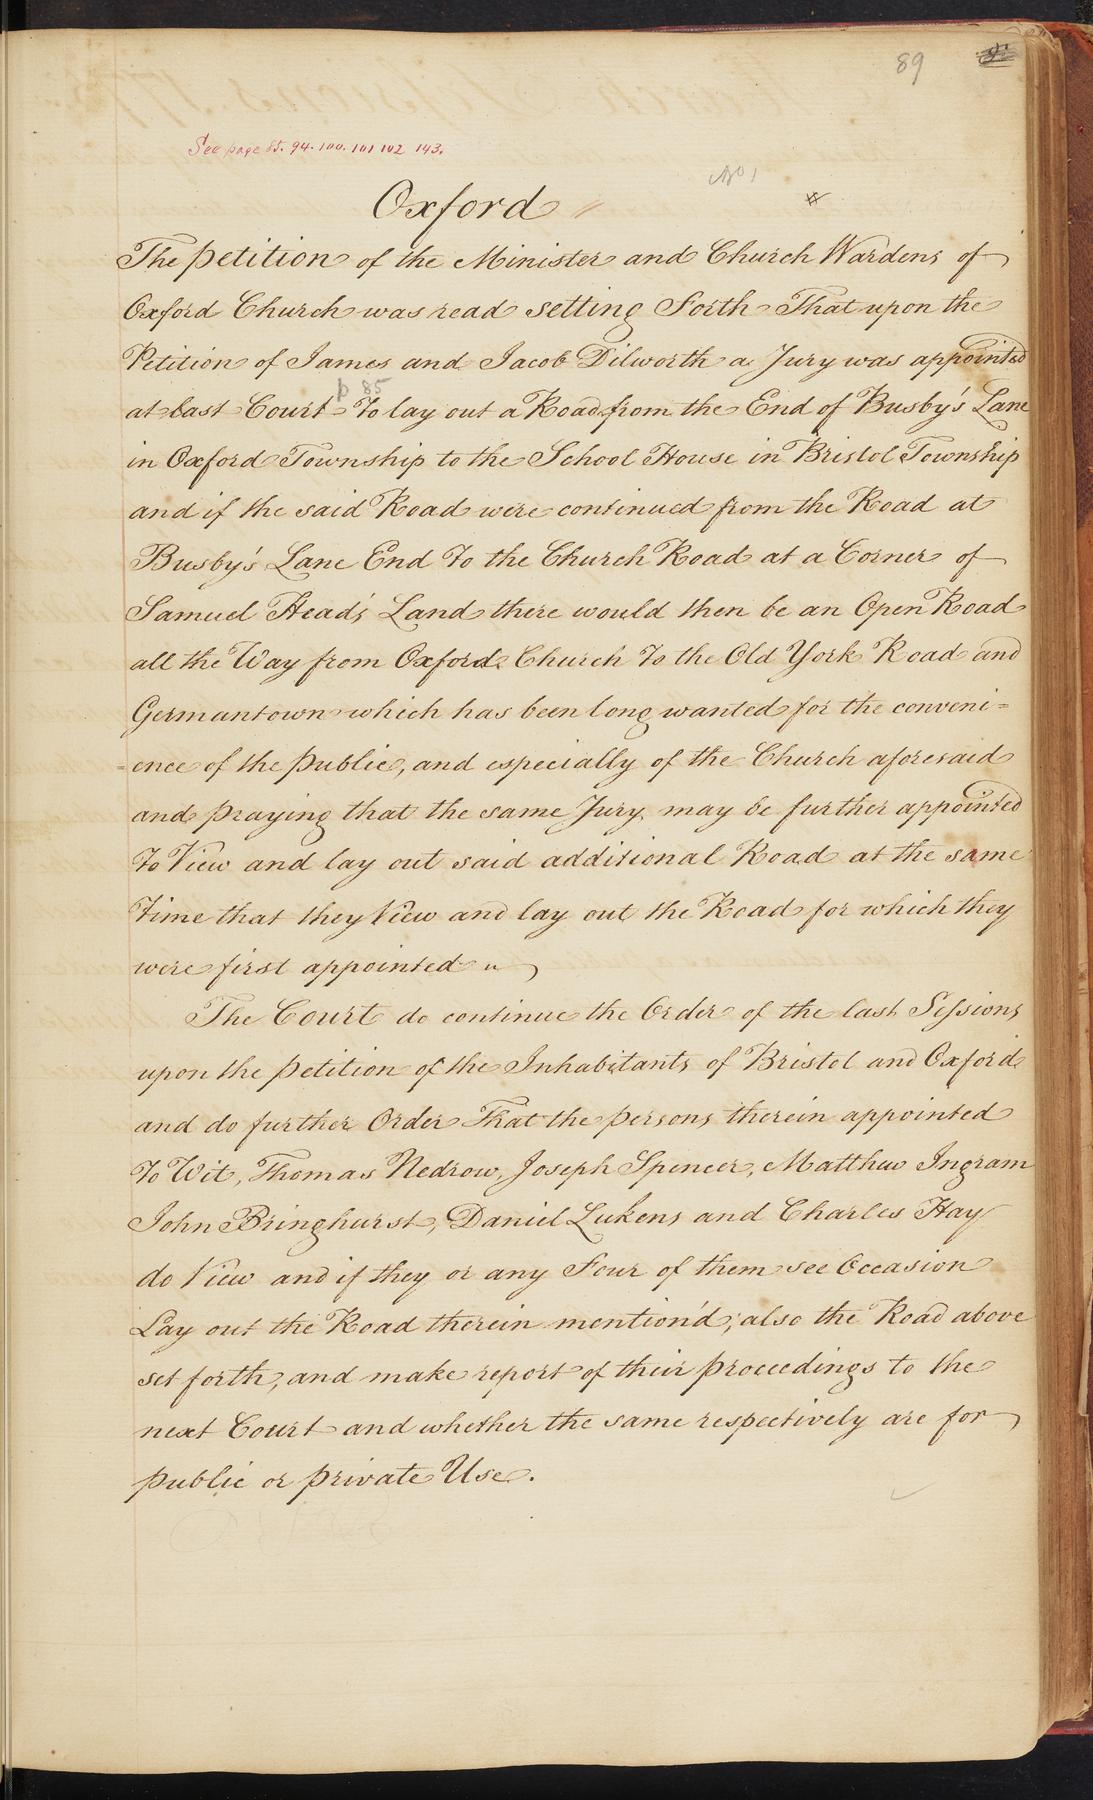 89
See page 85. 94. 100. 101 102 143.
No 1
Oxford
The petition of the Minister and Church Wardens of
Oxford Church was read setting Forth That upon the
Petition of James and Jacob Dilworth a Jury was appointed
p 85
at last Court To lay out a Road from the End of Busby's Lane
in Oxford Township to the School House in Bristol Township
and if the said Road were continued from the Road at
Busby's Lane End To the Church Road at a Corner of
Samuel Head's Land there would then be an Open Road
all the Way from Oxford Church To the Old York Road and
Germantown which has been long wanted for the conveni=
=ence of the public, and especially of the Church aforesaid
and praying that the same Jury may be further appointed
To View and lay out said additional Road at the same
Time that they View and lay out the Road for which they
were first appointed "
The Court do continue the Order of the last Sessions
upon the petition of the Inhabitants of Bristol and Oxford
and do further Order That the persons therein appointed
To Wit, Thomas Nedrow, Joseph Spencer, Matthew Ingram
John Bringhurst, Daniel Lukens and Charles Hay
do View and if they or any Four of them see Occasion
Lay out the Road therein mention'd; also the Road above
set forth, and make report of their proceedings to the
next Court and whether the same respectively are for
public or private Use.